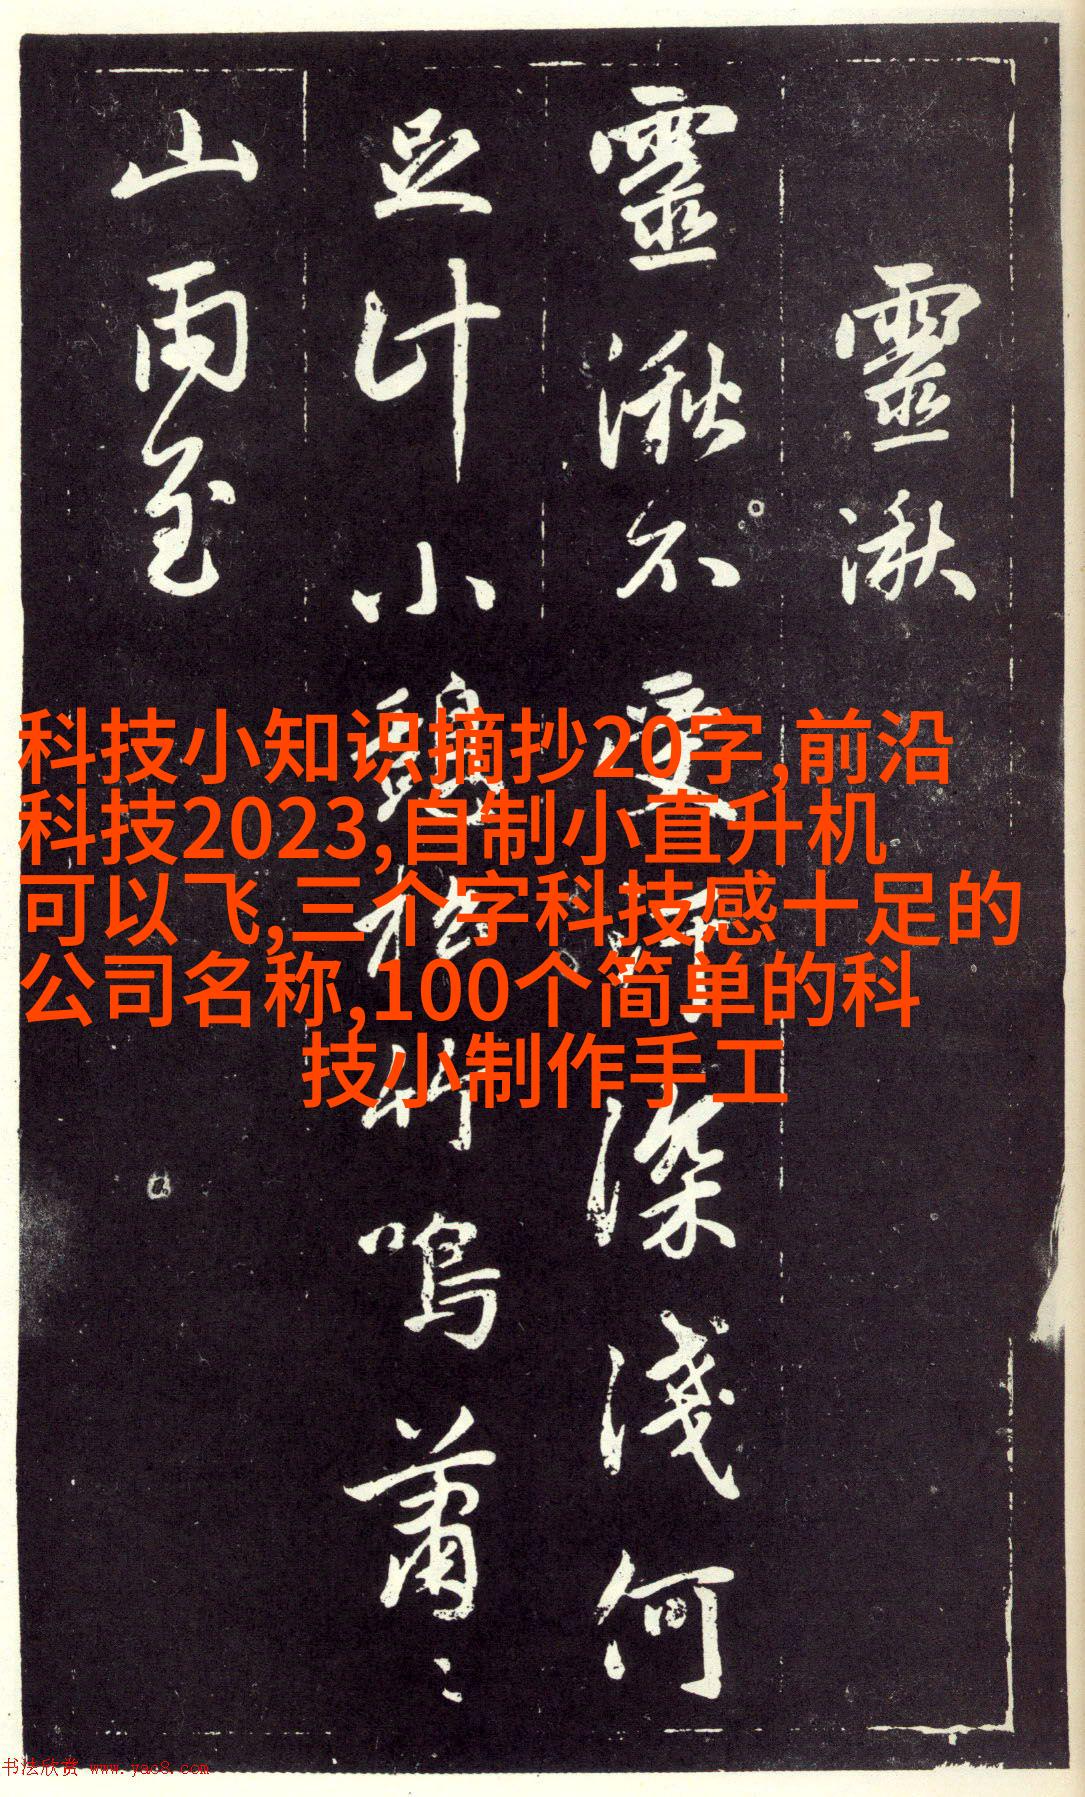 靈湫
靈湫不受深淺何
足計小松竹鳴蕭〻
山雨至
科技小知识摘抄20字,前沿
科技2023,自制小直升机
可以飞,三个字科技感十足的
公司名称,100个简单的科
技小制作手工
书法欣赏 www.yac8.com